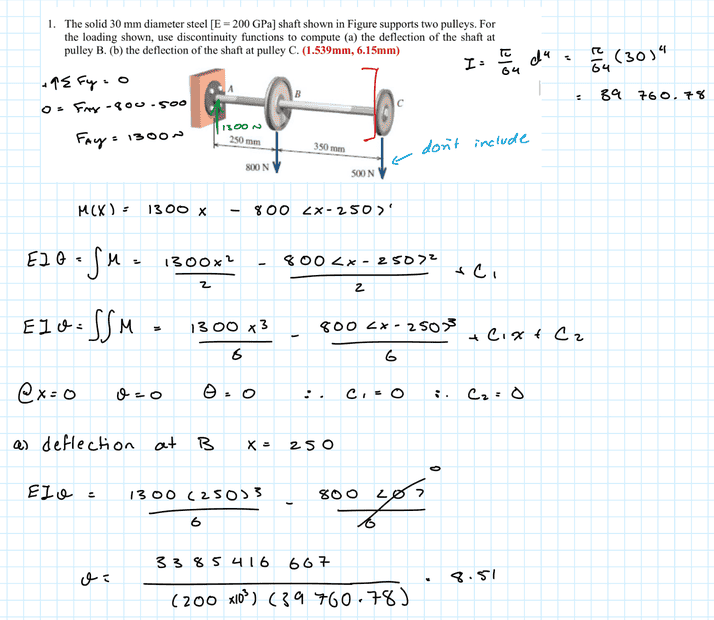 1. The solid 30 mm diameter steel [E = 200 GPa] shaft shown in Figure supports two pulleys. For
the loading shown, use discontinuity functions to compute (a) the deflection of the shaft at
pulley B. (b) the deflection of the shaft at pulley C. (1.539mm, 6.15mm)
I = π/64 d⁴ = π/64 (30)⁴
= 39 760.78
+↑Σ Fy = 0
0 = FAy - 800 - 500
FAy = 1300 N
A
B
C
1300 N
250 mm
350 mm
800 N
500 N
don't include
M(x) = 1300 x - 800 <x-250>¹
EIθ = ∫M = 1300x²/2 - 800<x-250>²/2 + C₁
EIv = ∫∫M = 1300x³/6 - 800<x-250>³/6 + C₁x + C₂
@x=0 v=0 θ=0 ∴ C₁=0 ∴ C₂=0
a) deflection at B x = 250
EIv = 1300(250)³/6 - 800<0>/6 0
v = 3385416 667/(200 x10³)(39 760.78) = 8.51